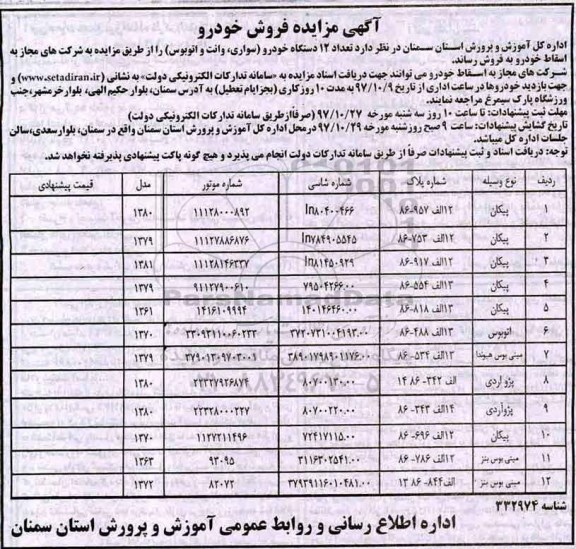 آگهی مزایده فروش خودرو
اداره کل آموزش و پرورش استان سمنان در نظر دارد تعداد ۱۲ دستگاه خودرو (سواری، وانت و اتوبوس) را از طریق مزایده به شرکت های مجاز به
اسقاط خودرو به فروش رساند.
شرکت های مجاز به اسقاط خودرو می توانند جهت دریافت اسناد مزایده به «سامانه تدارکات الکترونیکی دولت» به نشانی (www.setadiran.ir) و
جهت بازدید خودروها در ساعت اداری از تاریخ ۹۷/۱۰/۹ به مدت ۱۰ روز کاری (بجز ایام تعطیل) به آدرس سمنان، بلوار حکیم الهی، بلوار خرمشهر، جنب
ورزشگاه پارک سیمرغ مراجعه نمایند.
مهلت ثبت پیشنهادات: تا ساعت ۱۰ روز سه شنبه مورخه ۹۷/۱۰/۲۷ (صرفاً از طریق تدارکات الکترونیکی دولت)
تاریخ گشایش پیشنهادات: ساعت ۹ صبح روز شنبه مورخه ۹۷/۱۰/۲۹ در محل اداره کل آموزش و پرورش استان سمنان واقع در سمنان، بلوار سعدی، سالن
جلسات اداره کل میباشد.
توجه: دریافت اسناد و ثبت پیشنهادات صرفاً از طریق سامانه تدارکات دولت انجام می پذیرد و هیچ گونه پاکت پیشنهادی پذیرفته نخواهد شد.
ردیف نوع وسیله شماره پلاک شماره شاسی شماره موتور مدل قیمت پیشنهادی
۱ پیکان ۱۲الف ۹۵۷-۸۶ In۸۰۴۰۰۴۶۶ ۱۱۱۲۸۰۰۰۸۹۲ ۱۳۸۰
۲ پیکان ۱۲الف ۷۵۳-۸۶ In۷۸۴۹۰۵۵۴۵ ۱۱۱۲۷۸۸۶۸۷۶ ۱۳۷۹
۳ پیکان ۱۲الف ۹۱۷-۸۶ In۸۱۴۵۰۹۲۹ ۱۱۱۲۸۱۴۶۳۳۷ ۱۳۸۱
۴ پیکان ۱۳الف ۵۵۴-۸۶ ۷۹۵۰۴۲۶۶.۰۰ ۹۱۱۲۷۹۰۰۶۱۰ ۱۳۷۹
۵ پیکان ۱۳الف ۸۱۸-۸۶ ۱۴۰۱۴۶۴۶۰.۰۰ ۱۴۱۶۱۰۹۹۹۴ ۱۳۶۱
۶ اتوبوس ۱۳الف ۴۸۸-۸۶ ۳۷۲۰۷۳۱۰۰۴۱۹۳.۰۰ ۳۳۰۹۳۱۱۰۰۶۰۲۳۳ ۱۳۷۰
۷ مینی بوس هیوندا ۱۳الف ۵۳۴-۸۶ ۳۸۹۰۱۷۹۸۹۰۱۱۷۶.۰۰ ۳۷۹۰۱۳۰۹۷۰۳۰۰۱ ۱۳۷۹
۸ پژو اردی الف ۳۴۲-۸۶ ۱۴ ۸۰۷۰۰۱۳۰.۰۰ ۲۲۳۲۷۹۲۶۸۷۴ ۱۳۸۰
۹ پژواردی ۱۴الف ۳۴۳-۸۶ ۸۰۷۰۰۲۲۰.۰۰ ۲۲۳۲۸۰۰۰۲۲۷ ۱۳۸۰
۱۰ پیکان ۱۲الف ۶۹۶-۸۶ ۷۲۴۱۷۱۱۵.۰۰ ۱۱۲۷۲۱۱۴۹۶ ۱۳۷۰
۱۱ مینی بوس بنز ۱۲الف ۷۸۶-۸۶ ۳۱۱۶۳۰۲۵۴۱.۰۰ ۹۳۰۹۵ ۱۳۶۳
۱۲ مینی بوس بنز الف۸۴۴-۸۶ ۱۳ ۳۷۹۳۹۱۱۶۰۱۰۴۸۱.۰۰ ۸۲۰۷۲ ۱۳۷۲
شناسه ۳۳۲۹۷۴
اداره اطلاع رسانی و روابط عمومی آموزش و پرورش استان سمنان